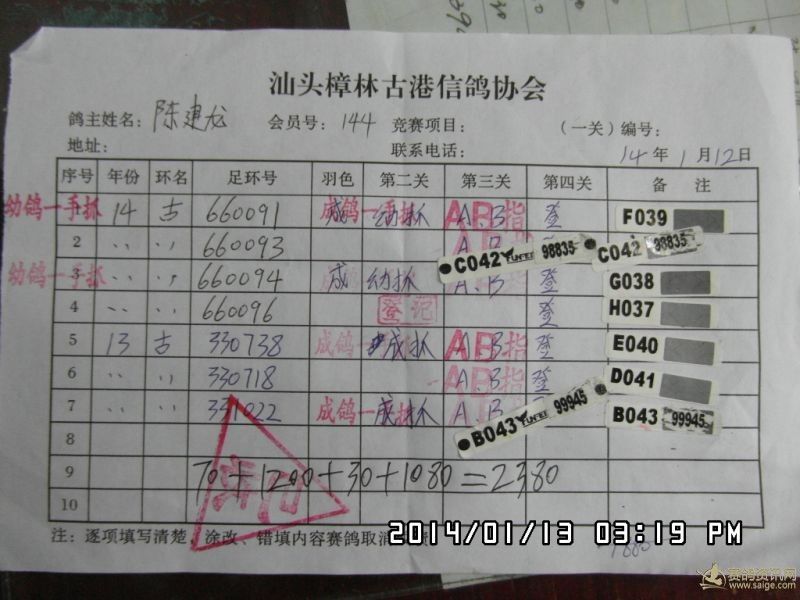 汕头樟林古港信鸽协会
鸽主姓名: 陈建龙 会员号: 144 竞赛项目: (一关) 编号:
地址: 联系电话: 14 年 1 月 12 日
序号 年份 环名 足环号 羽色 第二关 第三关 第四关 备 注
幼鸽一手抓 14 古 660091 A.B 指 登 F039
2 〃 〃 660093 C042 98835 C042 98835
幼鸽一手抓 3 〃 〃 660094 成 幼抓 A.B 登 G038
4 〃 〃 660096 登记 登 H037
5 13 古 330738 成鸽一 成抓 A.B 指 登 E040
6 〃 〃 330718 A.B 指 登 D041
7 〃 〃 331022 成鸽一 抓 A.B B043 99945 B043 99945
8
9 70+1200+30+1080=2380
10
注: 逐项填写清楚, 涂改、错填内容赛鸽取消
2014/01/13 03:19 PM
赛鸽资讯网
www.saige.com